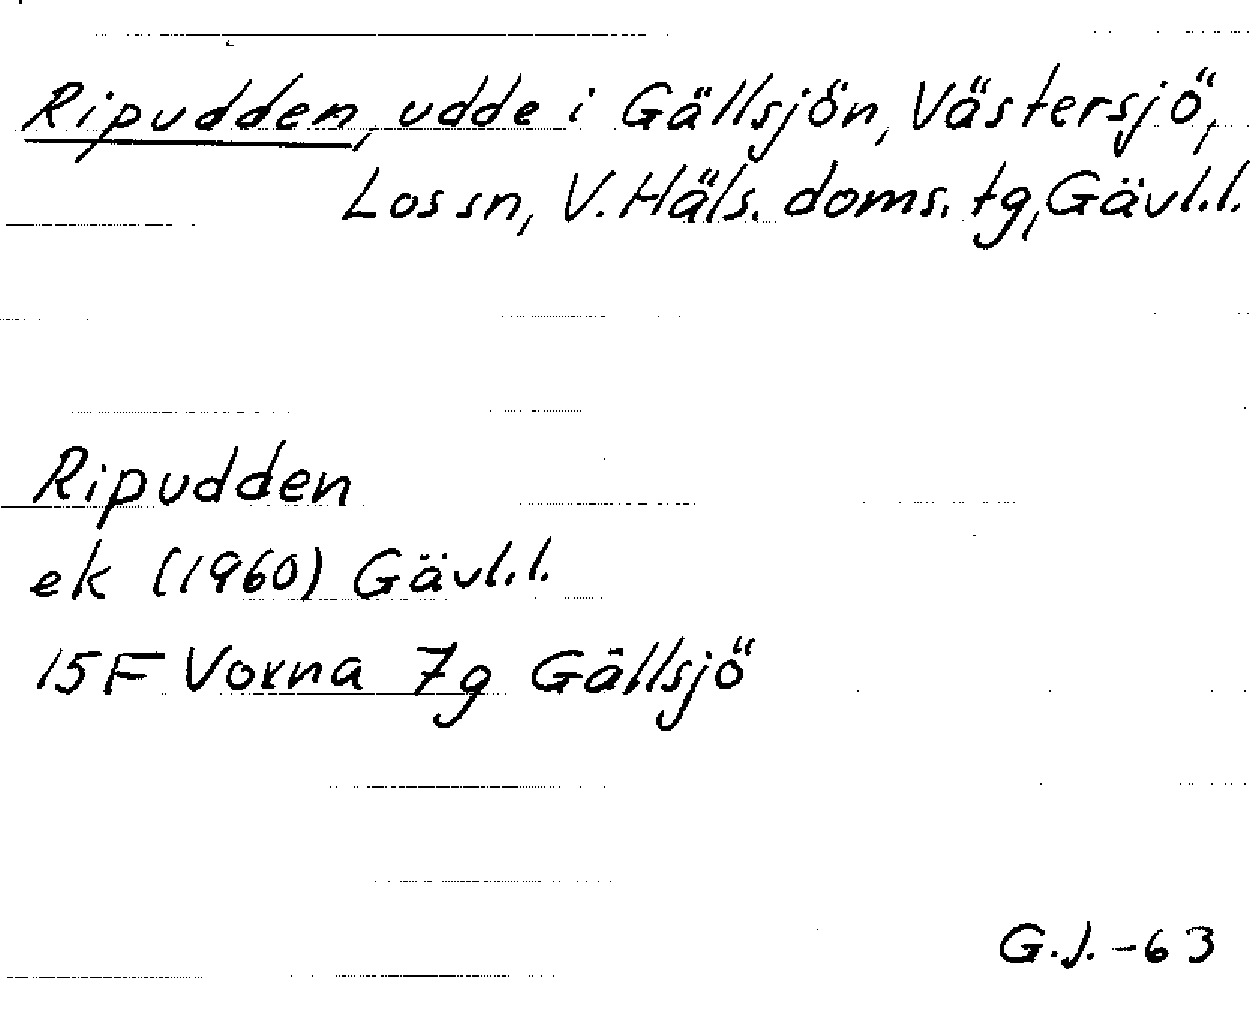 Ripudden, udde i Gällsjön, Västersjö,
Los sn, V. Häls. doms. tg, Gävl.l.
Ripudden
ek (1960) Gävl.l.
15F Voxna 7g Gällsjö
G.J. -63